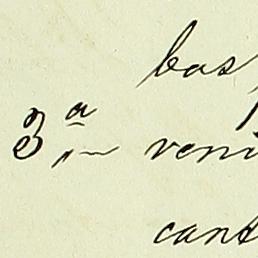 bas
3ª — veni
cant